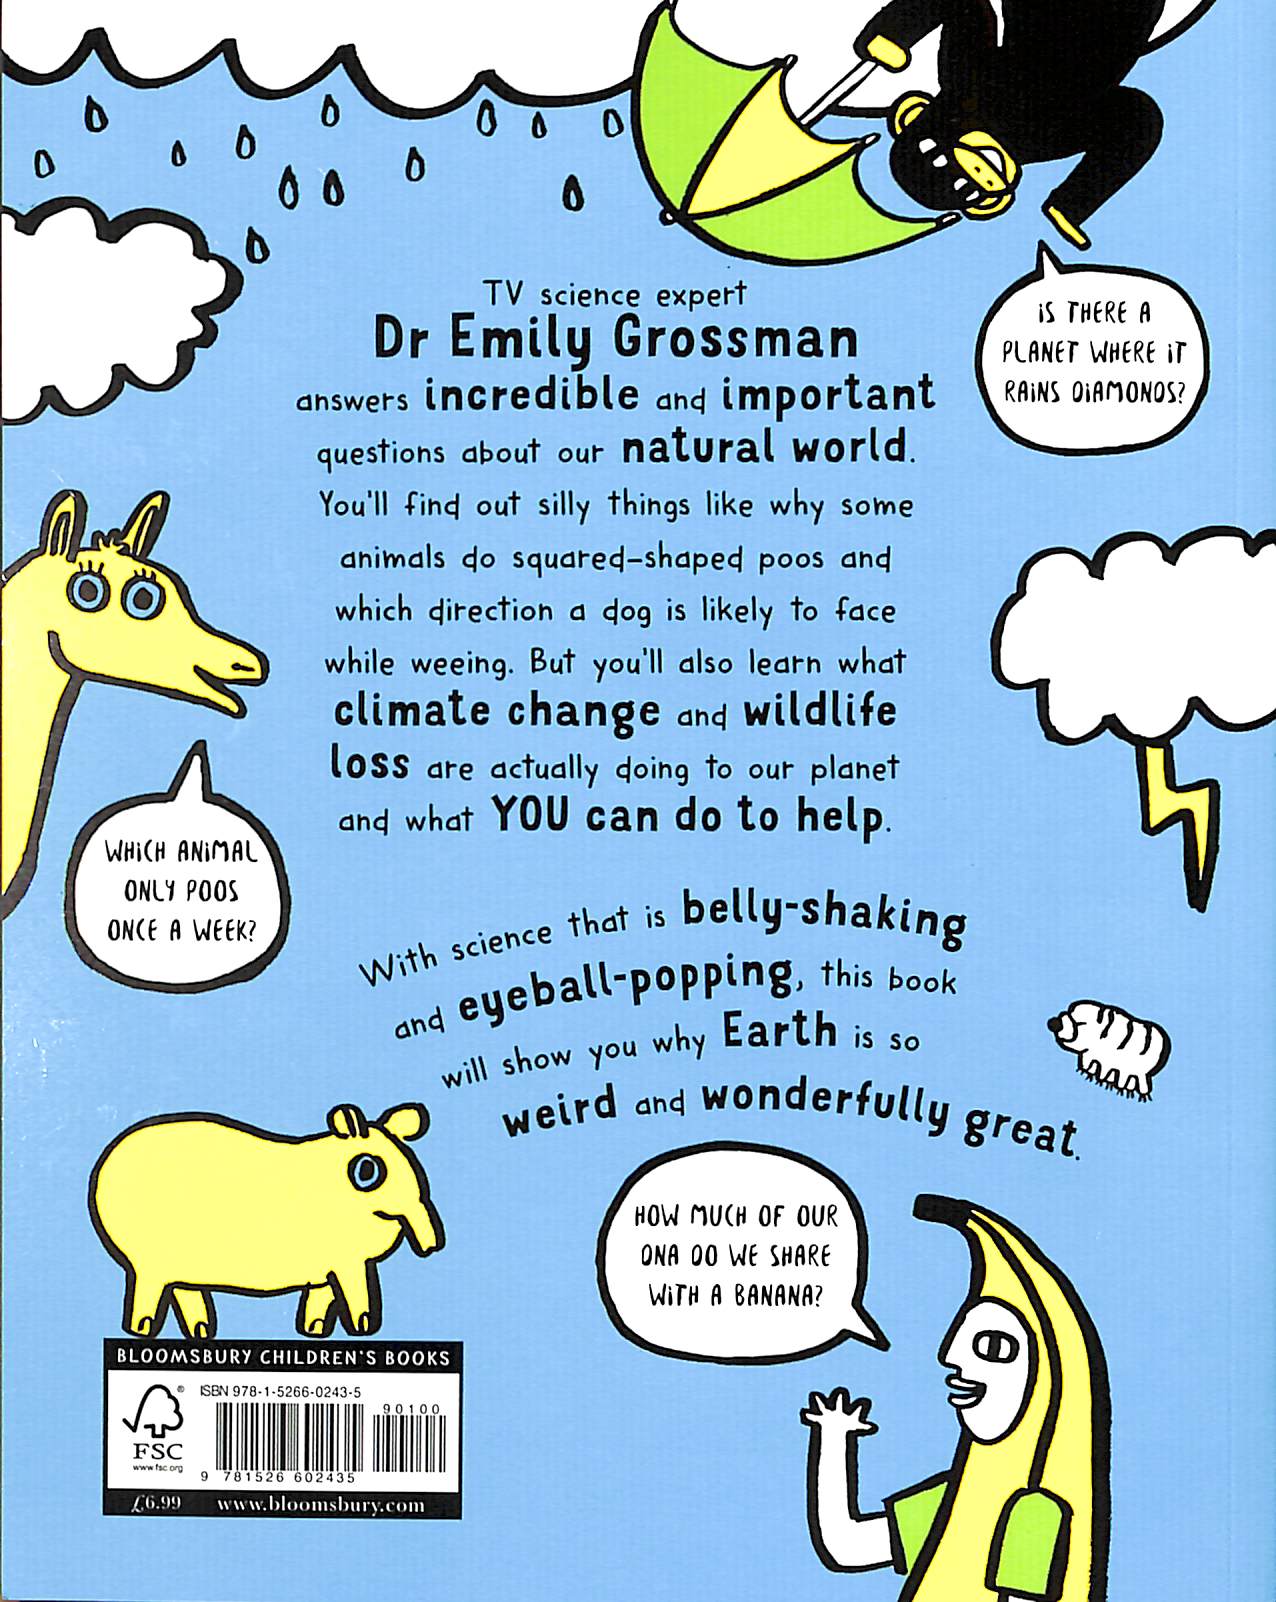 TV science expert
Dr Emily Grossman
answers incredible and important
questions about our natural world.
You'll find out silly things like why some
animals do squared-shaped poos and
which direction a dog is likely to face
while weeing. But you'll also learn what
climate change and wildlife
loss are actually doing to our planet
and what YOU can do to help.
IS THERE A
PLANET WHERE IT
RAINS DIAMONDS?
WHICH ANIMAL
ONLY POOS
ONCE A WEEK?
With science that is belly-shaking
and eyeball-popping, this book
will show you why Earth is so
weird and wonderfully great.
HOW MUCH OF OUR
DNA DO WE SHARE
WITH A BANANA?
BLOOMSBURY CHILDREN'S BOOKS
ISBN 978-1-5266-0243-5
90100
FSC
www.fsc.org
9 781526 602435
£6.99 www.bloomsbury.com